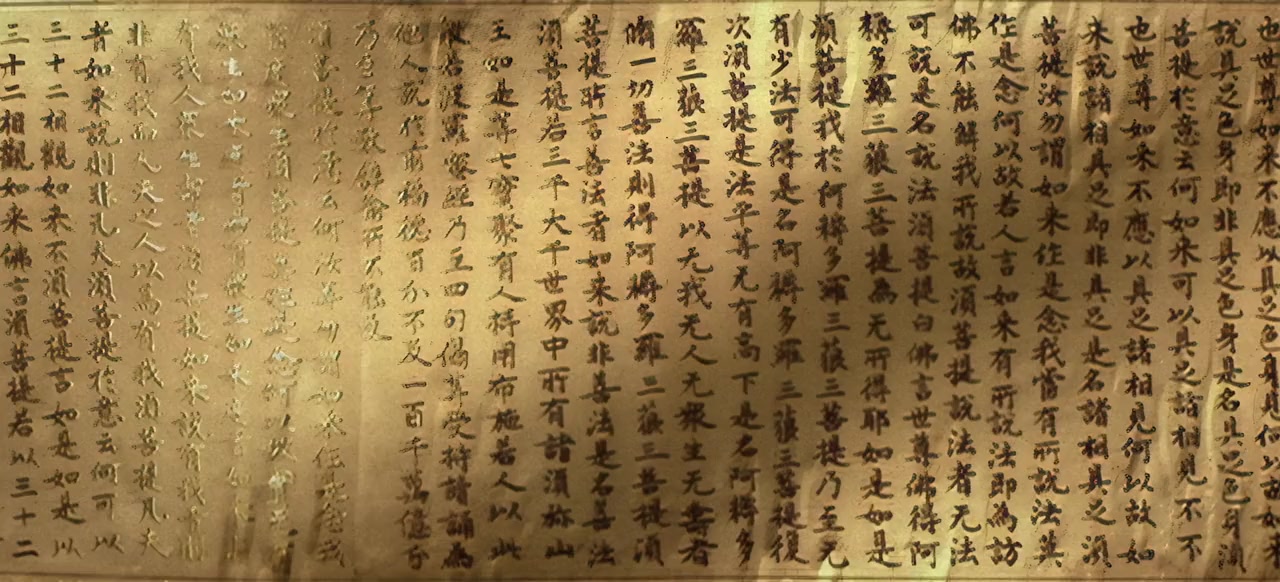 也世尊如来不應以具足色身見何以故如来
說具足色身即非具足色身是名具足色身湏
菩提於意云何如来可以具足諸相見不不
也世尊如来不應以具足諸相見何以故如
来說諸相具足即非具足是名諸相具足湏
菩提汝勿謂如来作是念我當有所說法莫
作是念何以故若人言如来有所說法即為訪
佛不能解我所說故湏菩提說法者无法
可說是名說法湏菩提白佛言世尊佛得阿
耨多羅三藐三菩提為无所得耶如是如是
湏菩提我於阿耨多羅三藐三菩提乃至无
有少法可得是名阿耨多羅三藐三菩提復
次湏菩提是法平等无有高下是名阿耨多
羅三藐三菩提以无我无人无衆生无壽者
脩一切善法則得阿耨多羅三藐三菩提湏
菩提所言善法者如来說非善法是名善法
湏菩提若三千大千世界中所有諸湏弥山
王如是等七寶聚有人持用布施若人以此
般若波羅蜜經乃至四句偈等受持讀誦為
他人說於前福德百分不及一百千萬億分
乃至筭數譬喻所不能及
湏菩提於意云何汝等勿謂如来作是念我
當度衆生湏菩提莫作是念何以故實无有
衆生如来度者若有衆生如来度者如来則
有我人衆生壽者湏菩提如来說有我者則
非有我而凡夫之人以為有我湏菩提凡夫
者如来說則非凡夫湏菩提於意云何可以
三十二相觀如来不湏菩提言如是如是以
三十二相觀如来佛言湏菩提若以三十二